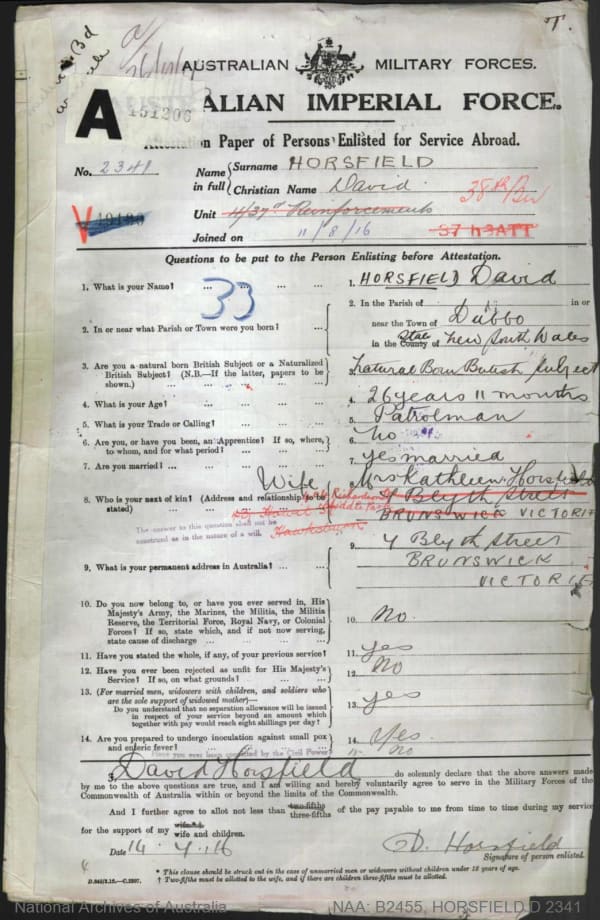 T.
AUSTRALIAN MILITARY FORCES.
A 151206
ALIAN IMPERIAL FORCE.
Attestation Paper of Persons Enlisted for Service Abroad.
No. 2341
Name in full { Surname HORSFIELD
Christian Name David.
38th/Bn
Unit 4/37th Reinforcements
Joined on 11/8/16
37th BATT
Questions to be put to the Person Enlisting before Attestation.
33
1. What is your Name? ... ... ... ...
1. HORSFIELD David
2. In or near what Parish or Town were you born? ...
2. In the Parish of in or
near the Town of Dubbo
in the County of State New South Wales
3. Are you a natural born British Subject or a Naturalized
British Subject? (N.B.—If the latter, papers to be
shown.) ... ... ... ... ...
3. Natural Born British Subject
4. What is your Age? ... ... ... ...
4. 26 years 11 months
5. What is your Trade or Calling? ... ... ...
5. Patrolman
6. Are you, or have you been, an Apprentice? If so, where,
to whom, and for what period? ... ... ...
6. No
7. Are you married? ... ... ... ... ...
7. Yes married
8. Who is your next of kin? (Address and relationship to be
stated) ... ...
Wife
Mrs Kathleen Horsfield
4 Blyth Street
BRUNSWICK VICTORIA
Richardson St
Middle Park
Hawksburn
The answer to this question shall not be
construed as in the nature of a will.
9. What is your permanent address in Australia? ... ...
9. 4 Blyth Street
BRUNSWICK
VICTORIA
10. Do you now belong to, or have you ever served in, His
Majesty's Army, the Marines, the Militia, the Militia
Reserve, the Territorial Force, Royal Navy, or Colonial
Forces? If so, state which, and if not now serving,
state cause of discharge ... ... ... ...
10. No.
11. Have you stated the whole, if any, of your previous service?
11. Yes
12. Have you ever been rejected as unfit for His Majesty's
Service? If so, on what grounds? ... ...
12. No
13. (For married men, widowers with children, and soldiers who
are the sole support of widowed mother)—
Do you understand that no separation allowance will be issued
in respect of your service beyond an amount which
together with pay would reach eight shillings per day?
13. Yes
14. Are you prepared to undergo inoculation against small pox
and enteric fever? ... ... ... ...
14. Yes.
Have you ever been convicted by the Civil Power?
15. No
I, David Horsfield do solemnly declare that the above answers made
by me to the above questions are true, and I am willing and hereby voluntarily agree to serve in the Military Forces of the
Commonwealth of Australia within or beyond the limits of the Commonwealth.
And I further agree to allot not less than two-fifths three-fifths of the pay payable to me from time to time during my service
for the support of my wife wife and children.
Date 14.4.16
D. Horsfield
Signature of person enlisted.
* This clause should be struck out in the case of unmarried men or widowers without children under 18 years of age.
† Two-fifths must be allotted to the wife, and if there are children three-fifths must be allotted.
D.845/2.15.—C.2807.
National Archives of Australia
NAA: B2455, HORSFIELD D 2341